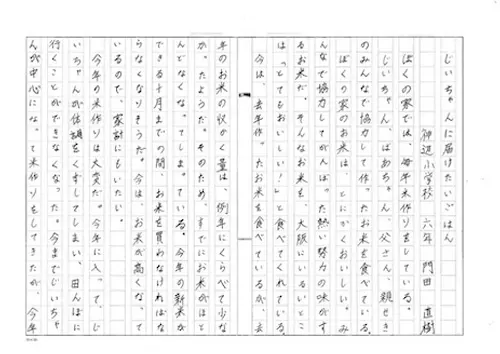 じいちゃんに届けたいごはん
神辺小学校 六年 門田 直樹
ぼくの家では、毎年米作りをしている。
じいちゃん、ばあちゃん、父さん、親せき
のみんなで協力して作ったお米を食べている。
ぼくの家のお米は、とにかくおいしい。み
んなで協力してがんばった熱い努力の味がす
るお米だ。そんなお米を、大阪にいるいとこ
は「とてもおいしい！」と食べてくれている。
今は、去年作ったお米を食べているが、去
年のお米の収かく量は、例年にくらべて少な
かったようだ。そのため、すでにお米がほと
んどなくなってしまっている。今年の新米が
できる十月までの間、お米を買わなければな
らなくなりそうだ。今は、お米が高くなって
いるので、家計にもいたい。
今年の米作りは大変だ。今年に入って、じ
いちゃんが体調をくずしてしまい、田んぼに
行くことができなくなった。今までじいちゃ
んが中心になって米作りをしてきたが、今年